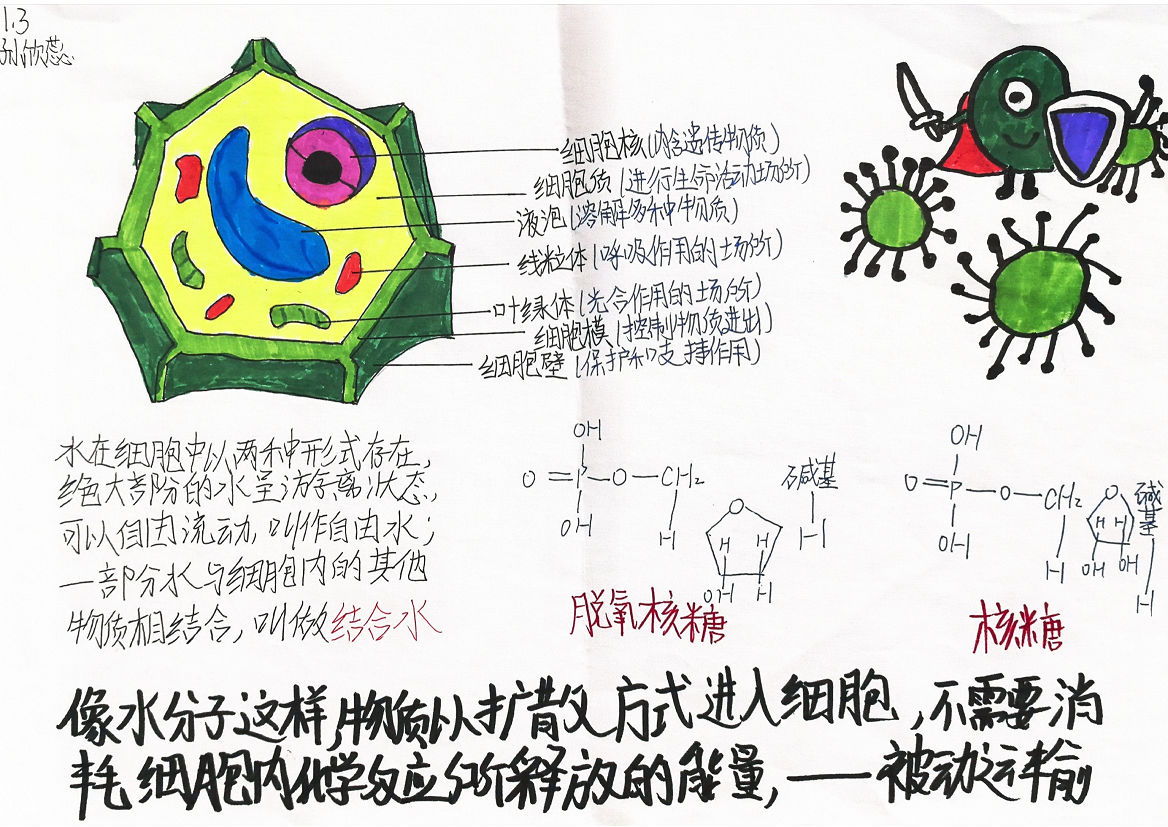 1.3
孙欣蕊
细胞核(内含遗传物质)
细胞质(进行生命活动场所)
液泡(溶解多种物质)
线粒体(呼吸作用的场所)
叶绿体(光合作用的场所)
细胞模(控制物质进出)
细胞壁(保护和支持作用)
水在细胞中以两种形式存在,
绝大部份的水呈游离状态,
可以自由流动,叫作自由水;
一部分水与细胞内的其他
物质相结合,叫做结合水
OH
O=P-O-CH₂
OH
H
O
碱基
H
H H
OH H
脱氧核糖
OH
O=P-O-CH₂
OH
H
O
碱基
H
H H
OH OH
核糖
像水分子这样,物质以扩散方式进入细胞,不需要消
耗细胞内化学反应所释放的能量,——被动运输